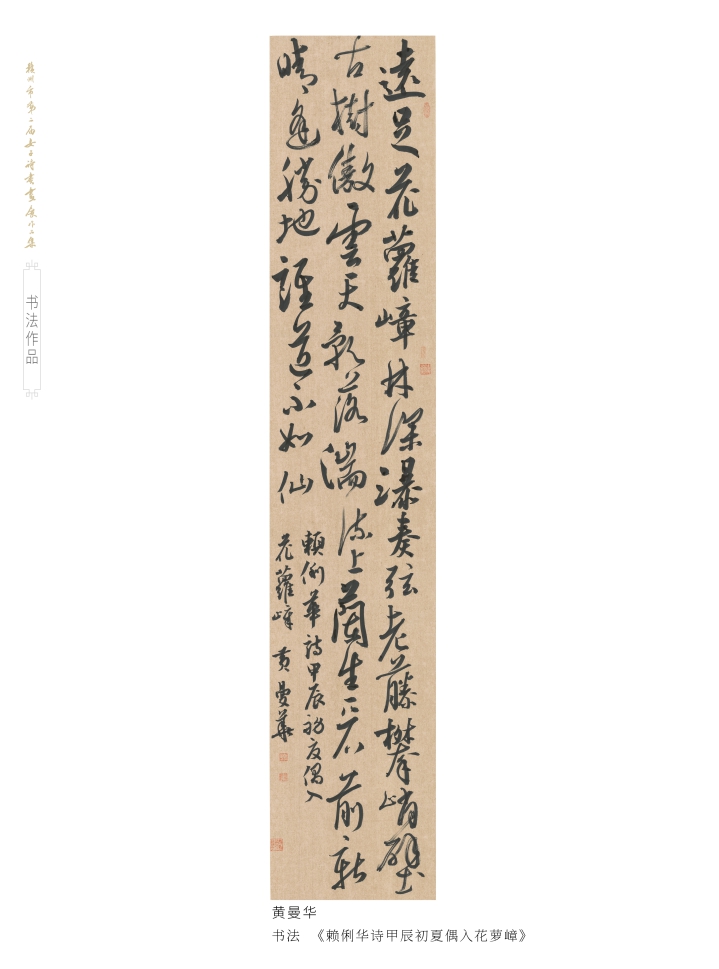 赣州市第二届女子诗书画展作品集
书法作品
遠足花蘿嶂林深瀑奏弦老藤攀峭壁
古樹傲雲天落湍流上蘭生石前新
晴逢勝地誰道不如仙
賴俐華詩甲辰初夏偶入
花蘿嶂 黄曼華
黄曼华
书法 《赖俐华诗甲辰初夏偶入花萝嶂》